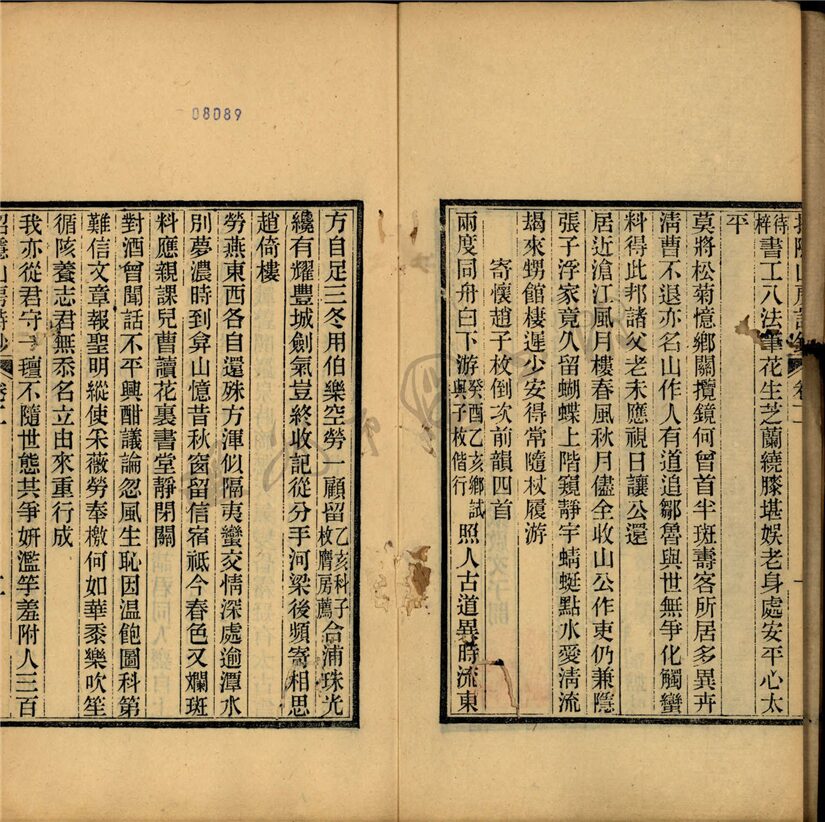 待梓書工八法筆花生芝蘭繞膝堪娛老身處安平心太
平
莫將松菊憶鄉關攬鏡何曾首半斑壽客所居多異卉
淸曹不退亦名山作人有道追鄒魯與世無爭化觸蠻
料得此邦諸父老未應視日讓公還
居近滄江風月樓春風秋月儘全收山公作吏仍兼隱
張子浮家竟久留蝴蝶上階窺靜宇蜻蜓點水愛淸流
朅來甥館棲遲少安得常隨杖履游
寄懷趙子枚倒次前韻四首
兩度同舟白下游癸酉乙亥鄉試與子枚偕行照人古道異時流東
方自足三冬用伯樂空勞一顧留乙亥科子枚膺房薦合浦珠光
纔有耀豐城劍氣豈終收記從分手河梁後頻寄相思
趙倚樓
勞燕東西各自還殊方渾似隔夷蠻交情深處逾潭水
別夢濃時到弇山憶昔秋窗留信宿祗今春色又斕斑
料應親課兒曹讀花裏書堂靜閉關
對酒曾聞話不平興酣議論忽風生恥因温飽圖科第
難信文章報聖明縱使采薇勞奉檄何如華黍樂吹笙
循陔養志君無忝名立由來重行成
我亦從君守一壇不隨世態共爭妍濫竽羞附人三百
招隱山房詩鈔 卷二 二
08089